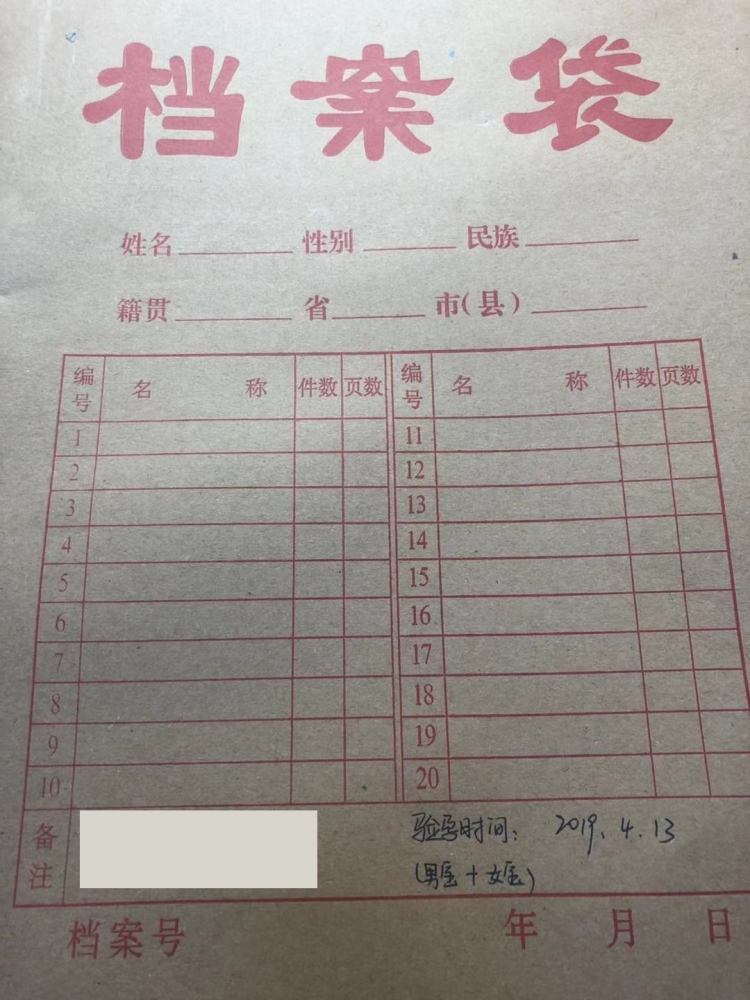 档案袋
姓名 性别 民族
籍贯 省 市(县)
编号 名 称 件数 页数 编号 名 称 件数 页数
1 11
2 12
3 13
4 14
5 15
6 16
7 17
8 18
9 19
10 20
备注 时间: 2019.4.13
(男 + 女)
档案号 年 月 日